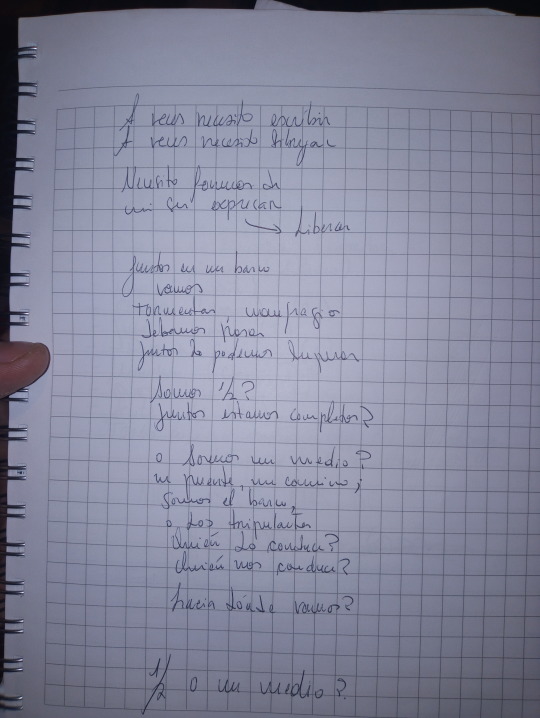 A veces necesito escribir
A veces necesito dibujar
Necesito formas de
mi ser expresar
→ Liberar
Juntos en un barco
vamos
tormentas, naufragios
debamos pasar
juntos lo podemos superar
Somos 1/2?
Juntos estamos completos?
o somos un medio?
un puente, un camino;
somos el barco,
o los tripulantes
Quién lo conduce?
Quién nos conduce?
hacia dónde vamos?
1/2 o un medio?